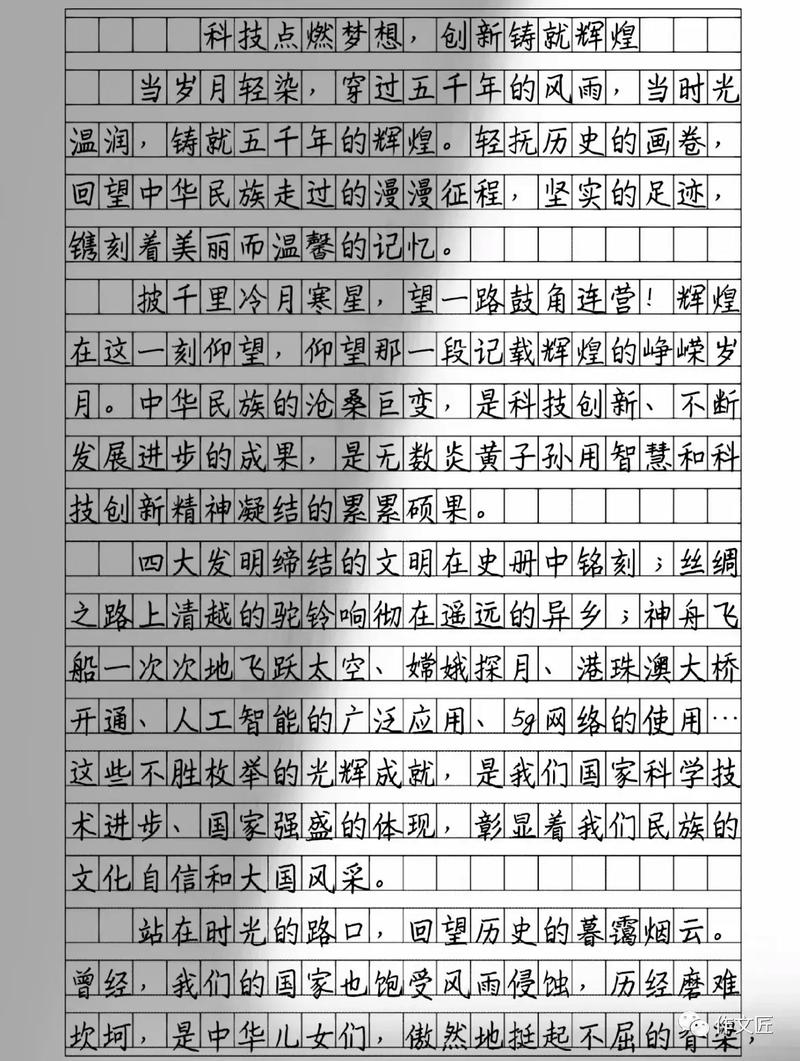 科技点燃梦想，创新铸就辉煌
当岁月轻染，穿过五千年的风雨，当时光
温润，铸就五千年的辉煌。轻抚历史的画卷，
回望中华民族走过的漫漫征程，坚实的足迹，
镌刻着美丽而温馨的记忆。
披千里冷月寒星，望一路鼓角连营！辉煌
在这一刻仰望，仰望那一段记载辉煌的峥嵘岁
月。中华民族的沧桑巨变，是科技创新、不断
发展进步的成果，是无数炎黄子孙用智慧和科
技创新精神凝结的累累硕果。
四大发明缔结的文明在史册中铭刻；丝绸
之路上清越的驼铃响彻在遥远的异乡；神舟飞
船一次次地飞跃太空、嫦娥探月、港珠澳大桥
开通、人工智能的广泛应用、5g网络的使用…
这些不胜枚举的光辉成就，是我们国家科学技
术进步、国家强盛的体现，彰显着我们民族的
文化自信和大国风采。
站在时光的路口，回望历史的暮霭烟云。
曾经，我们的国家也饱受风雨侵蚀，历经磨难
坎坷，是中华儿女们，傲然地挺起不屈的脊梁，
作文匠